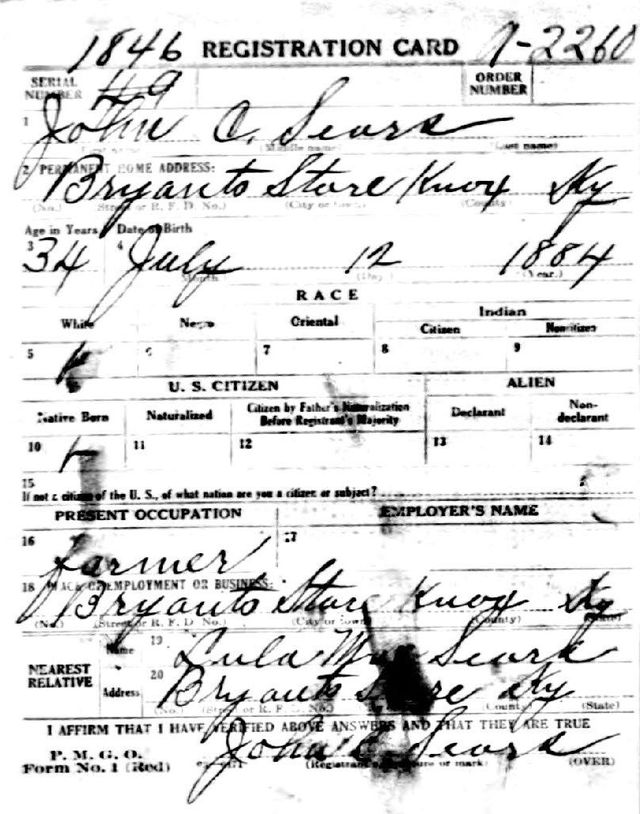 1846 REGISTRATION CARD A-2260
SERIAL NUMBER 49 ORDER NUMBER
1 John C. Sears
(Middle name) (Last name)
2 PERMANENT HOME ADDRESS:
Bryants Store Knox Ky
(No.) (Street or R. F. D. No.) (City or town) (County)
Age in Years Date of Birth
3 34 4 July 12 1884
(Month) (Day.) (Year.)
RACE
White Negro Oriental Indian
Citizen Noncitizen
5 6 7 8 9
U. S. CITIZEN ALIEN
Native Born Naturalized Citizen by Father's Naturalization Before Registrant's Majority Declarant Non-declarant
10 11 12 13 14
15
If not a citizen of the U. S., of what nation are you a citizen or subject?
PRESENT OCCUPATION EMPLOYER'S NAME
16 farmer 17
18 PLACE OF EMPLOYMENT OR BUSINESS:
Bryants Store Knox Ky
(No.) (Street or R. F. D. No.) (City or town) (County) (State)
NEAREST RELATIVE Name 19 Lula Sears
Address 20 Bryants Store Ky
(No.) (Street or R. F. D. No.) (County) (State)
I AFFIRM THAT I HAVE VERIFIED ABOVE ANSWERS AND THAT THEY ARE TRUE
P. M. G. O.
Form No. 1 (Red) John C Sears
(Registrant's signature or mark) (OVER)